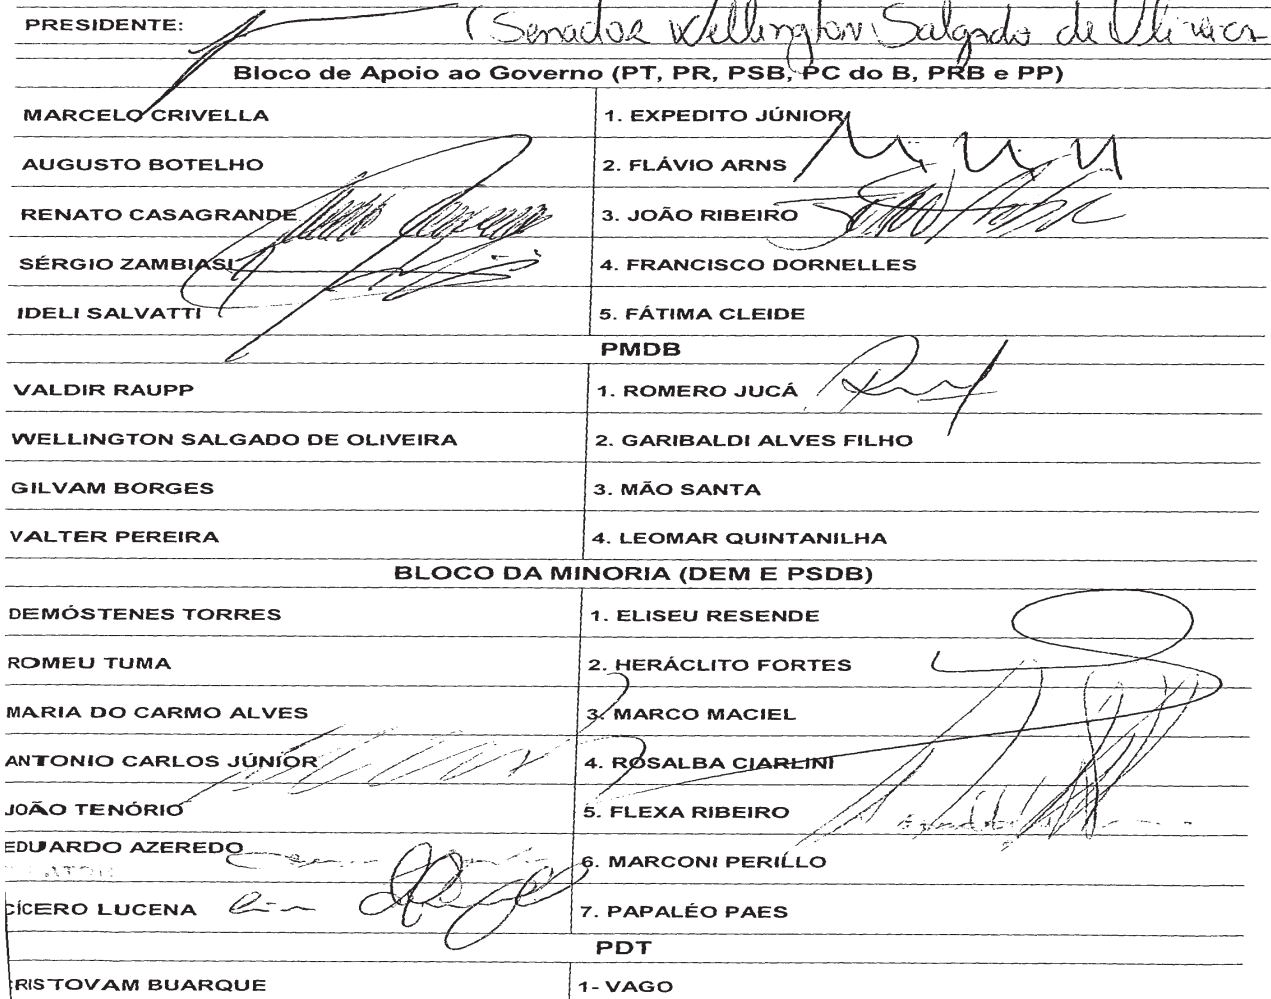 PRESIDENTE: (Senador Wellington Salgado de Oliveira
Bloco de Apoio ao Governo (PT, PR, PSB, PC do B, PRB e PP)
MARCELO CRIVELLA 1. EXPEDITO JÚNIOR
AUGUSTO BOTELHO 2. FLÁVIO ARNS
RENATO CASAGRANDE 3. JOÃO RIBEIRO
SÉRGIO ZAMBIASI 4. FRANCISCO DORNELLES
IDELI SALVATTI 5. FÁTIMA CLEIDE
PMDB
VALDIR RAUPP 1. ROMERO JUCÁ
WELLINGTON SALGADO DE OLIVEIRA 2. GARIBALDI ALVES FILHO
GILVAM BORGES 3. MÃO SANTA
VALTER PEREIRA 4. LEOMAR QUINTANILHA
BLOCO DA MINORIA (DEM E PSDB)
DEMÓSTENES TORRES 1. ELISEU RESENDE
ROMEU TUMA 2. HERÁCLITO FORTES
MARIA DO CARMO ALVES 3. MARCO MACIEL
ANTONIO CARLOS JÚNIOR 4. ROSALBA CIARLINI
JOÃO TENÓRIO 5. FLEXA RIBEIRO
EDUARDO AZEREDO 6. MARCONI PERILLO
CÍCERO LUCENA 7. PAPALÉO PAES
PDT
RISTOVAM BUARQUE 1- VAGO